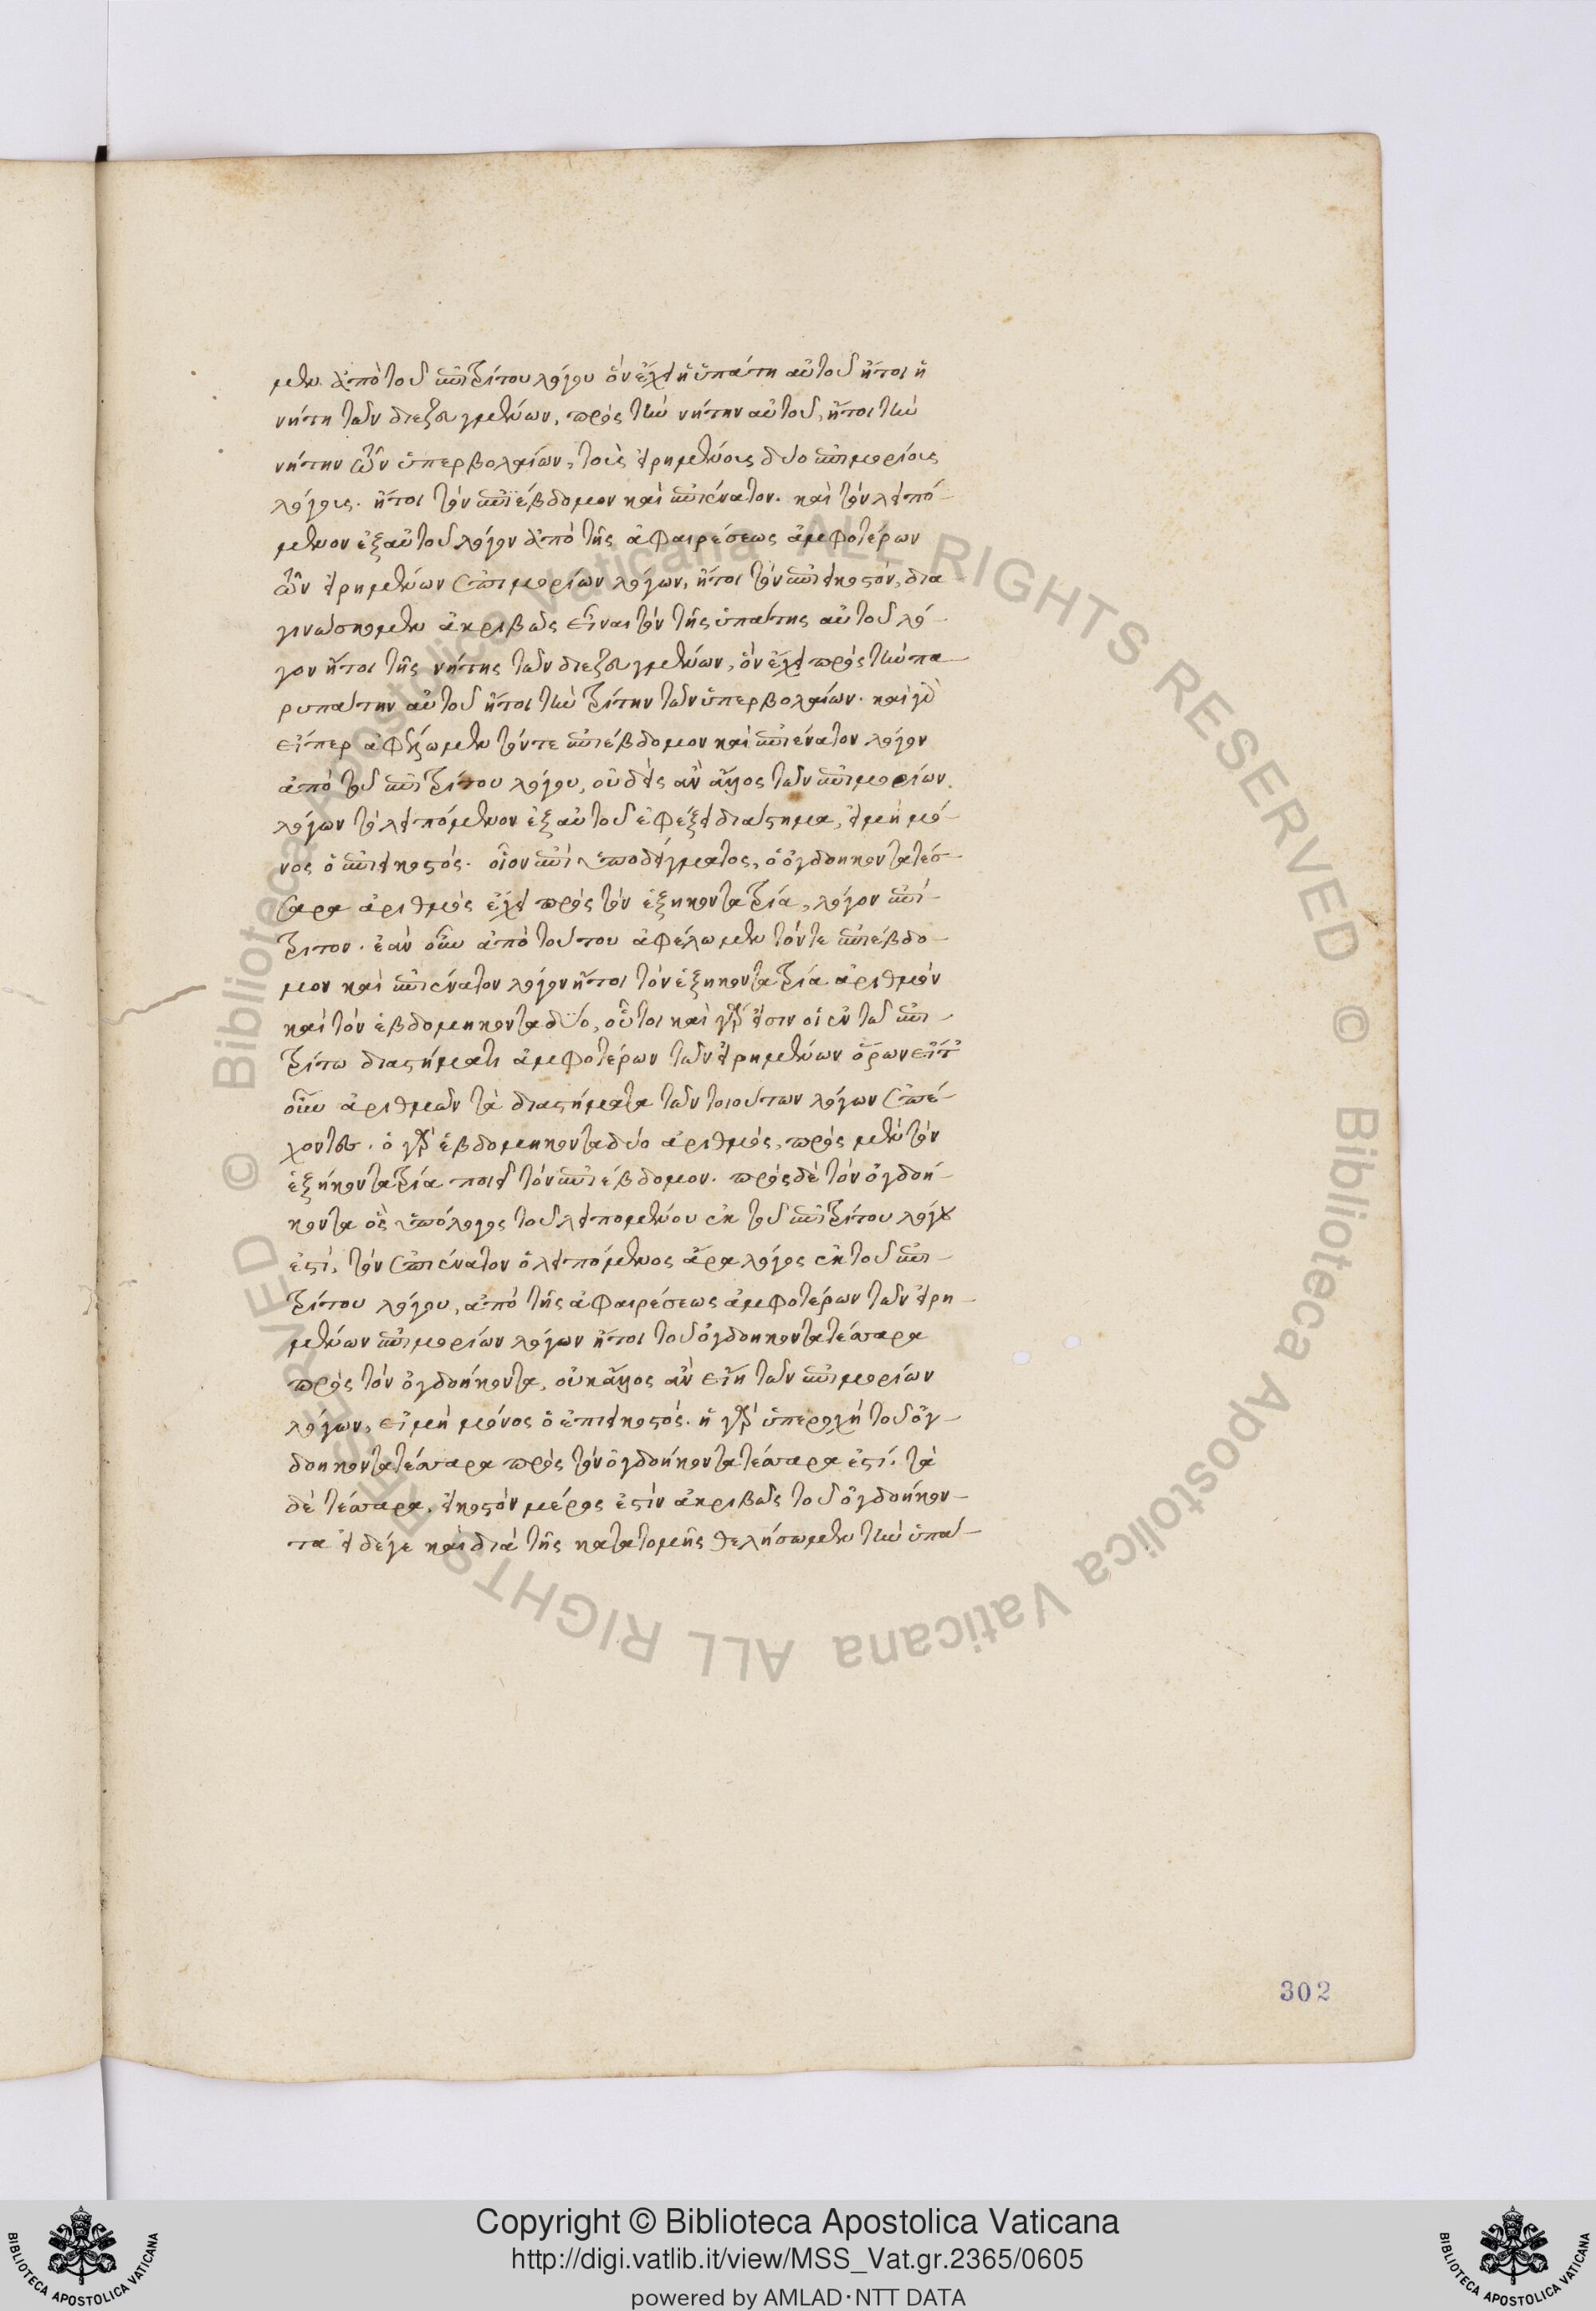 μεν ἀπὸ τοῦ ἐπιτρίτου λόγου ὃν ἔχει ἡ ὑπάτη αὐτοῦ ἤτοι ἡ
νήτη τῶν διεζευγμένων, πρὸς τὴν νήτην αὐτοῦ, ἤτοι τὴν
νήτην τῶν ὑπερβολαίων, τοὺς εἰρημένους δύο ἐπιμορίους
λόγους. ἤτοι τὸν ἐπιέβδομον καὶ ἐπιένατον. καὶ τὸν λειπό-
μενον ἐξ αὐτοῦ λόγον ἀπὸ τῆς ἀφαιρέσεως ἀμφοτέρων
τῶν εἰρημένων ἐπιμορίων λόγων, ἤτοι τὸν ἐπιεικοστόν, δια-
γινώσκομεν ἀκριβῶς εἶναι τὸν τῆς ὑπάτης αὐτοῦ λό-
γον ἤτοι τῆς νήτης τῶν διεζευγμένων, ὃν ἔχει πρὸς τὴν πα-
ρυπάτην αὐτοῦ ἤτοι τὴν τρίτην τῶν ὑπερβολαίων. καὶ γὰρ
εἴπερ τόν τε ἐπιέβδομον καὶ ἐπιένατον λόγον
ἀπὸ τοῦ ἐπιτρίτου λόγου, οὐδεὶς ἂν ἄλλος τῶν ἐπιμορίων
λόγων τὸ λειπόμενον ἐξ αὐτοῦ ἐφέξει διάστημα, εἰ μὴ μό-
νος ὁ ἐπιεικοστός. οἷον ἐπὶ ὑποδείγματος, ὁ ὀγδοηκοντατέσ-
σαρα ἀριθμὸς ἔχει πρὸς τὸν ἑξηκοντατρία, λόγον ἐπί-
τριτον. ἐὰν οὖν ἀπὸ τούτου ἀφέλωμεν τόν τε ἐπιέβδο-
μον καὶ ἐπιένατον λόγον ἤτοι τὸν ἑξηκοντατρία ἀριθμὸν
καὶ τὸν ἑβδομηκονταδύο, οὗτοι καὶ γάρ εἰσιν οἱ ἐν τῷ ἐπι-
τρίτῳ διαστήματι ἀμφοτέρων τῶν εἰρημένων ὅρων
οὖν ἀριθμῶν τὰ διαστήματα τῶν τοιούτων λόγων ἐπέ-
χοντες. ὁ γὰρ ἑβδομηκονταδύο ἀριθμός, πρὸς μὲν τὸν
ἑξήκοντα τρία ποιεῖ τὸν ἐπιέβδομον. πρὸς δὲ τὸν ὀγδοή-
κοντα ὃς ὑπόλογος τοῦ λειπομένου ἐκ τοῦ ἐπιτρίτου λόγου
ἐστί, τὸν ἐπιένατον ὁ λειπόμενος ἄρα λόγος ἐκ τοῦ ἐπι-
τρίτου λόγου, ἀπὸ τῆς ἀφαιρέσεως ἀμφοτέρων τῶν εἰρη-
μένων ἐπιμορίων λόγων ἤτοι τοῦ ὀγδοηκοντατέσσαρα
πρὸς τὸν ὀγδοήκοντα, οὐκ ἄλλος ἂν εἴη τῶν ἐπιμορίων
λόγων, εἰ μὴ μόνος ὁ ἐπιεικοστός. ἡ γὰρ ὑπεροχὴ τοῦ ὀγ-
δοηκοντατέσσαρα πρὸς τὸν ὀγδοήκοντα τέσσαρα ἐστί. τὰ
δὲ τέσσαρα, εἰκοστὸν μέρος ἐστὶν ἀκριβῶς τοῦ ὀγδοήκον-
τα εἰ δέ γε καὶ διὰ τῆς κατατομῆς θελήσωμεν τὴν ὑπά-
302
Copyright © Biblioteca Apostolica Vaticana
http://digi.vatlib.it/view/MSS_Vat.gr.2365/0605
powered by AMLAD·NTT DATA
BIBLIOTECA APOSTOLICA VATICANA
BIBLIOTECA APOSTOLICA VATICANA
© Biblioteca Apostolica Vaticana ALL RIGHTS RESERVED
© Biblioteca Apostolica Vaticana ALL RIGHTS RESERVED